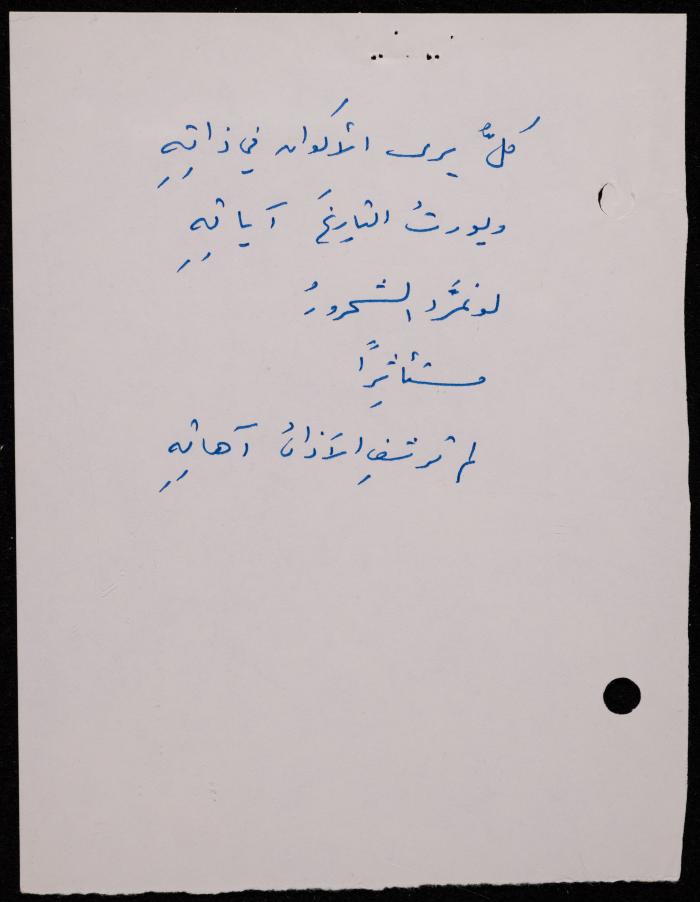 كلٌّ يرى الأكوان في ذاتِهِ
ويورثُ التاريخَ آياتِهِ
لو غرَّد الشحرورُ
مستأثِرًا
لم ترشفِ الآذانُ آهاتِهِ